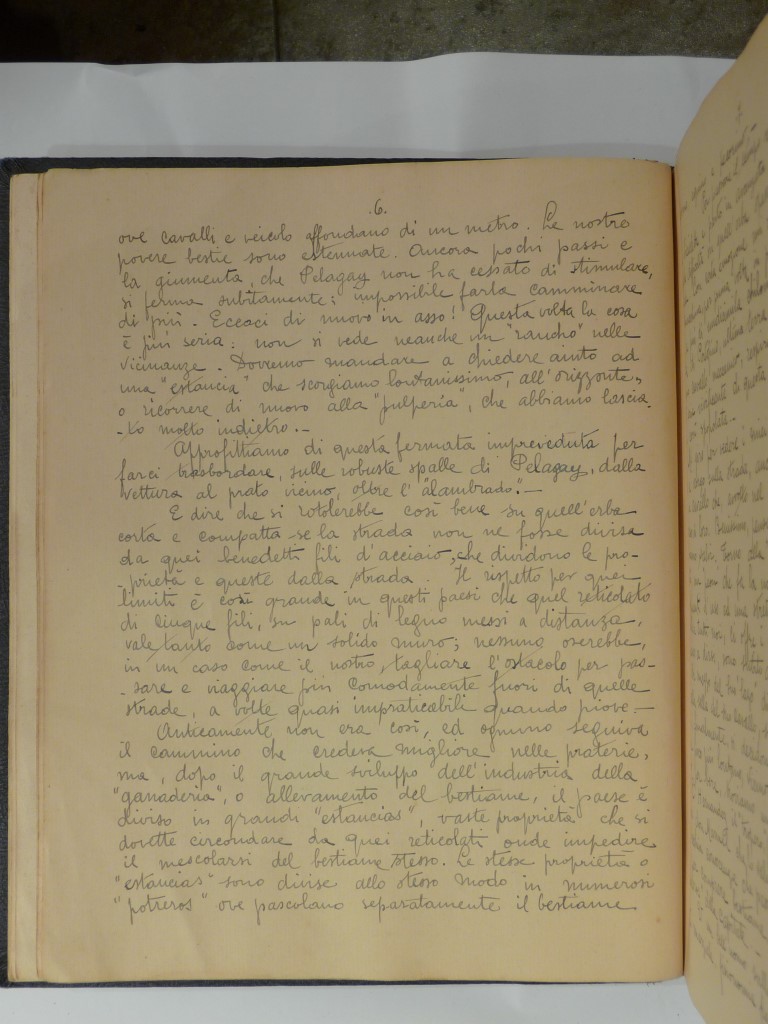 .6.
ove cavalli e veicolo affondano di un metro. Le nostre
povere bestie sono estenuate. Ancora pochi passi e
la giumenta, che Pelagay non ha cessato di stimulare,
si ferma subitamente: impossibile farla camminare
di più. Eccoci di nuovo in asso! Questa volta la cosa
è più seria: non si vede neanche un "rancho" nelle
vicinanze. Dovremo mandare a chiedere aiuto ad
una "estancia" che scorgiamo lontanissimo, all'orizzonte,
o ricorrere di nuovo alla "pulperia", che abbiamo lascia-
-to molto indietro.-
Approfittiamo di questa fermata impreveduta per
farci trasbordare, sulle robuste spalle di Pelagay, dalla
vettura al prato vicino, oltre l'"alambrado".-
E dire che si rotolerebbe così bene su quell'erba
corta e compatta se la strada non ne fosse divisa
da quei benedetti fili d'acciaio, che dividono le pro-
-prietà e queste dalla strada. Il rispetto per quei
limiti è così grande in questi paesi che quel reticolato
di cinque fili, su pali di legno messi a distanza,
vale tanto come un solido muro; nessuno oserebbe,
in un caso come il nostro, tagliare l'ostacolo per pas-
-sare e viaggiare più comodamente fuori di quelle
strade, a volte quasi impraticabili quando piove.-
Anticamente non era così, ed ognuno seguiva
il cammino che credeva migliore nelle praterie,
ma, dopo il grande sviluppo dell'industria della
"ganaderia", o allevamento del bestiame, il paese è
diviso in grandi "estancias", vaste proprietà che si
dovette circondare da quei reticolati onde impedire
il mescolarsi del bestiame stesso. Le stesse proprietà o
"estancias" sono divise allo stesso modo in numerosi
"potreros" ove pascolano separatamente il bestiame